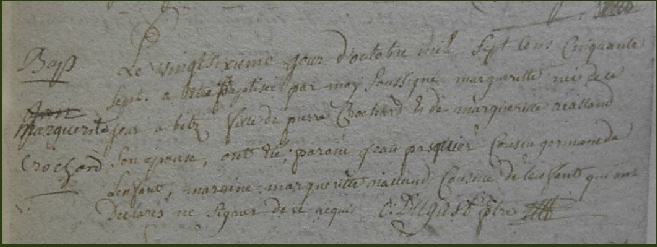 Bap
Jean
Marguerite
Crochard
Le vingtsixieme jour d'octobre mil sept cens cinquante
sept a été baptiseé par moy soussigné margueritte neé de ce
jour a betz fille de pierre Crochard et de margueritte rialland
son epouse, ont été, parain jean pasquier Cousin germain de
Lenfant, maraine margueritte rialland Cousine de lenfant qui ont
declarés ne signer de ce requis C: Dugast ptre